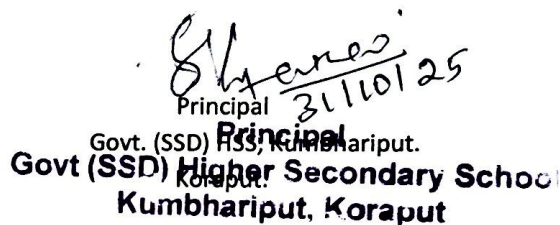 31/10/25
Principal
Govt. (SSD) HSS, Kumbhariput.
Koraput.
Principal
Govt (SSD) Higher Secondary School
Kumbhariput, Koraput